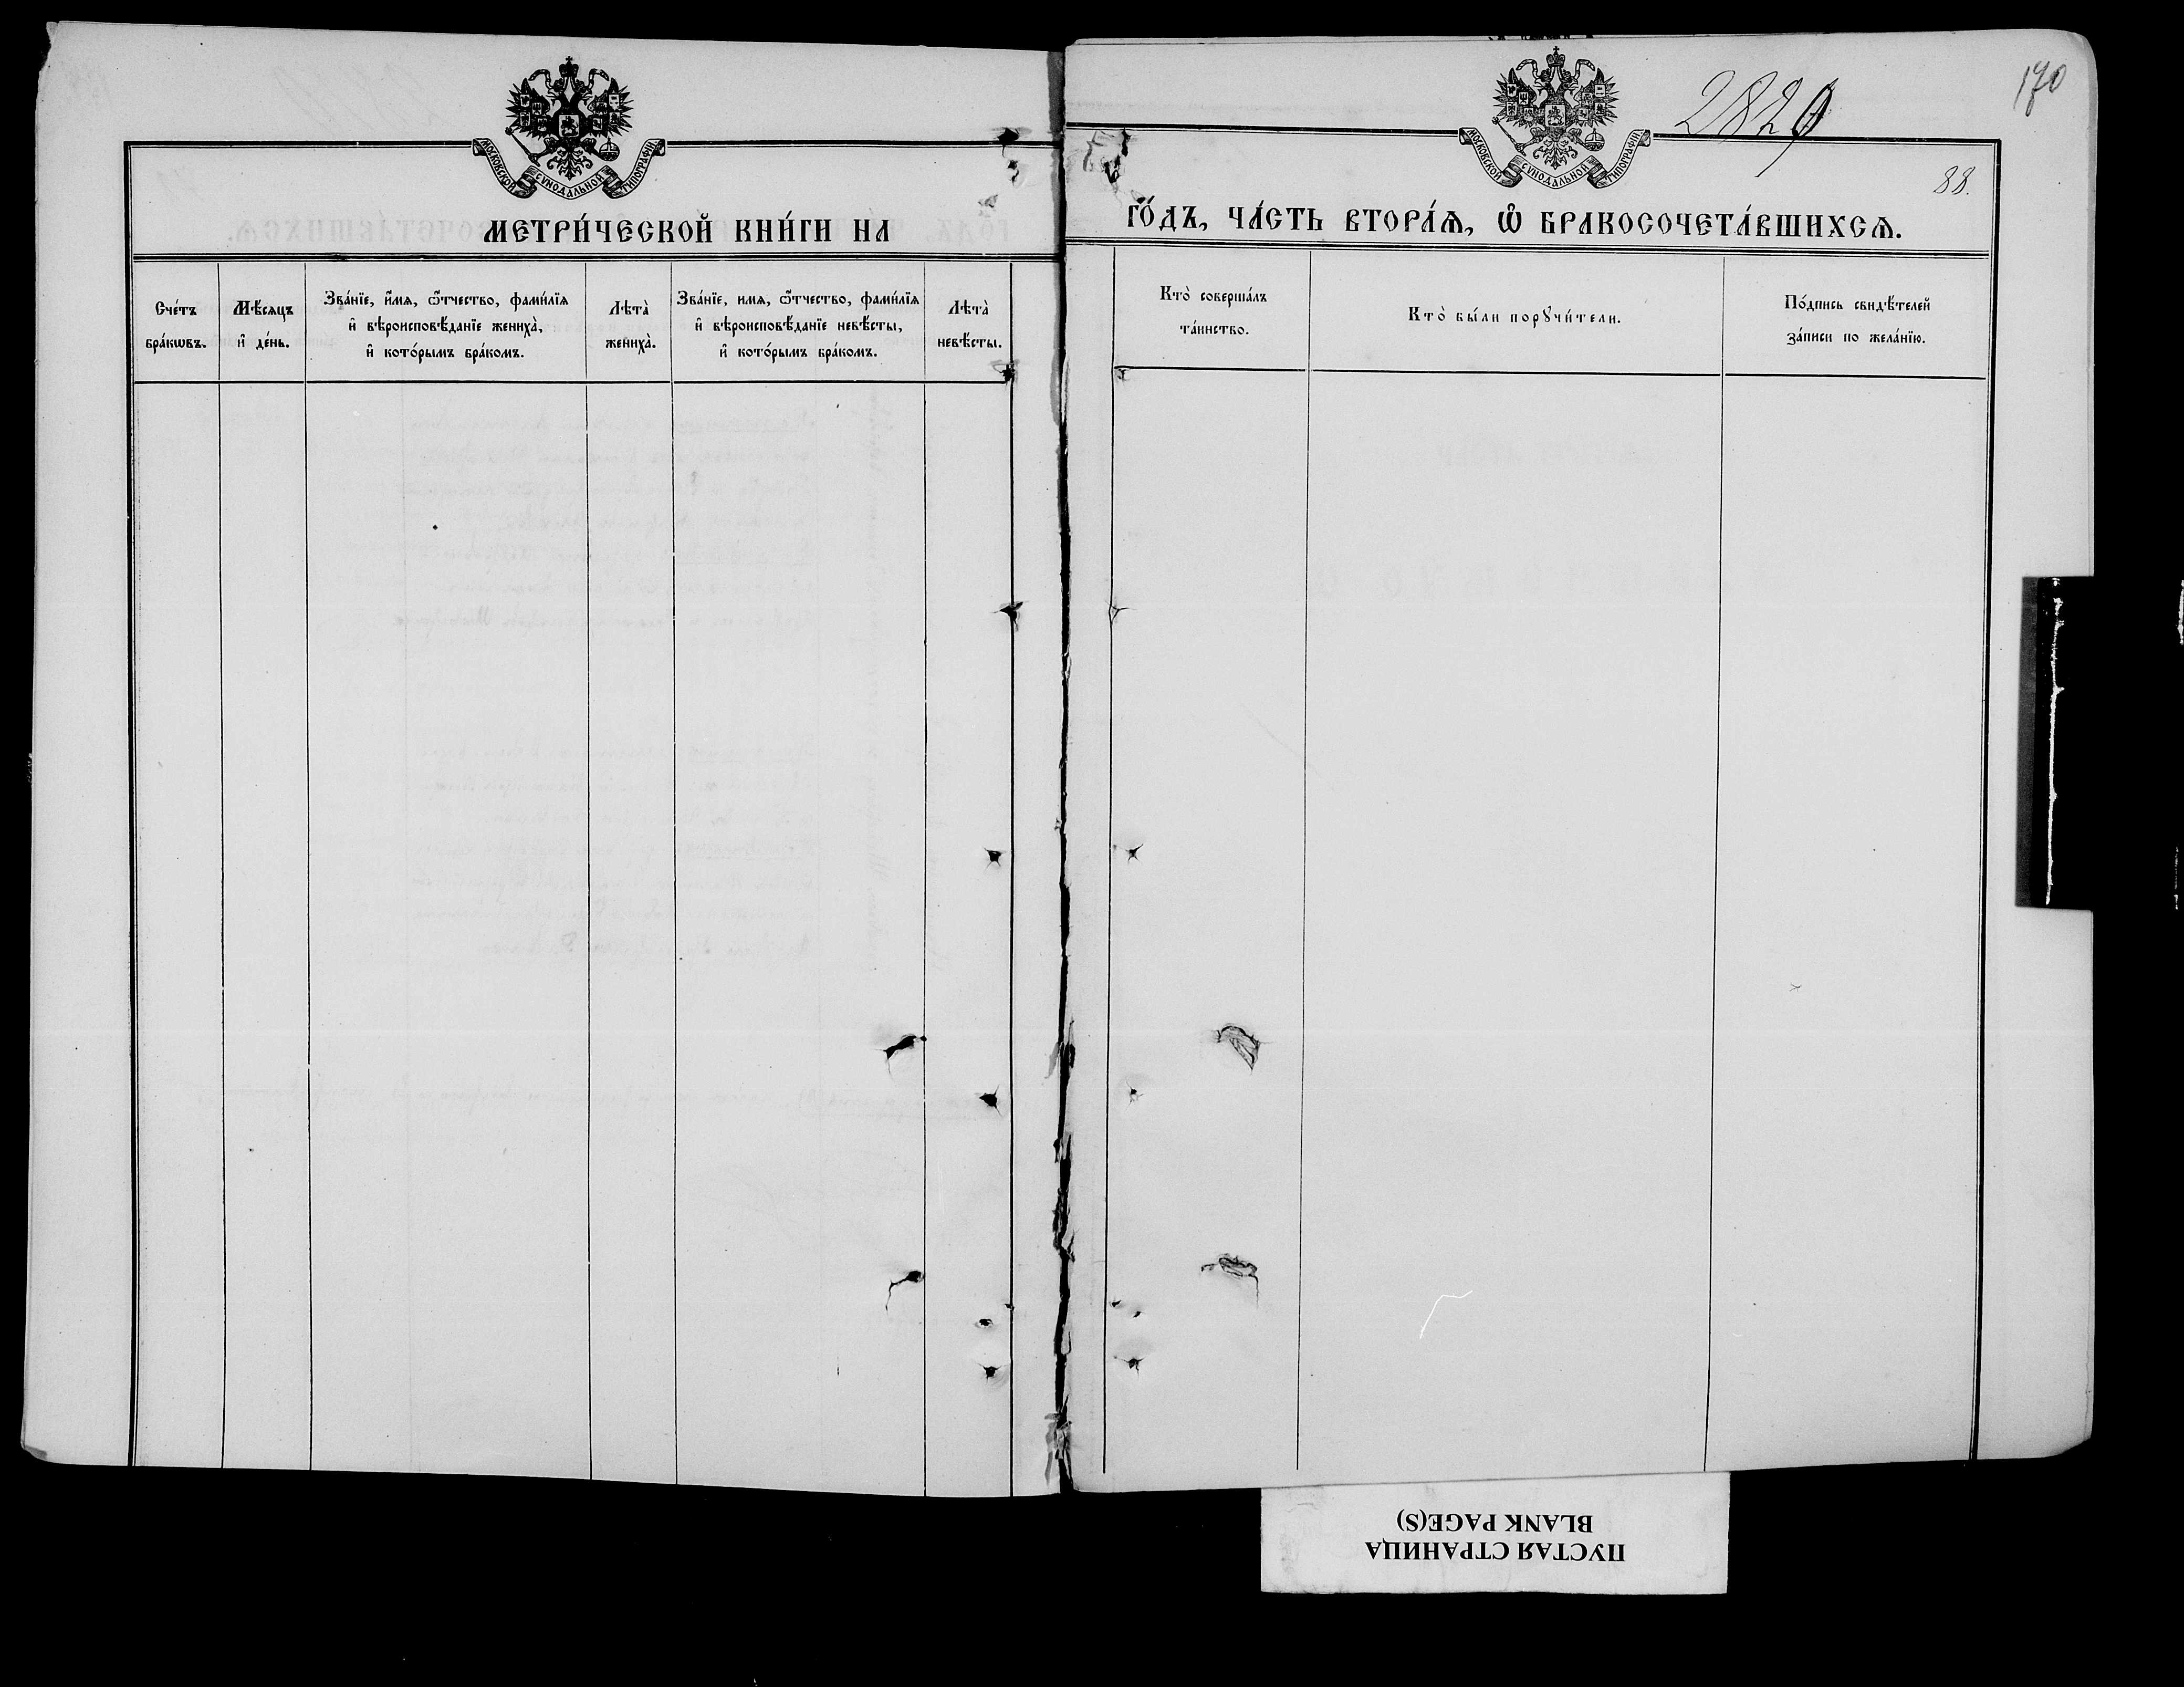 МОСКОВСКОЙ СѴНОДАЛЬНОЙ ТИПОГРАФІИ
МЕТРИ́ЧЕСКОЙ КНИ́ГИ НА
Сче́тъ бра́кѡвъ.
Мѣ́сяцъ и҆ де́нь.
Зва́нїе, и҆́мѧ, ѻ҆́тчество, фами́лїѧ
и҆ вѣроисповѣ́данїе жениха̀,
и҆ кото́рымъ бра́комъ.
Лѣта̀ жениха̀.
Зва́нїе, имѧ, ѻ҆́тчество, фами́лїѧ
и҆ вѣроисповѣ́данїе невѣ́сты,
и҆ кото́рымъ бра́комъ.
Лѣта̀ невѣ́сты.
170
МОСКОВСКОЙ СѴНОДАЛЬНОЙ ТИПОГРАФІИ
88.
ГО́ДЪ, ЧА́СТЬ ВТОРА́Ѧ, Ѡ҆ БРАКОСОЧЕТА́ВШИХСѦ.
Кто̀ соверша́лъ
та́инство.
Кто̀ бы́ли порꙋчи́тели.
По́дпись свидѣ́телей
за́писи по жела́нїю.
ПУСТАЯ СТРАНИЦА
BLANK PAGE(S)